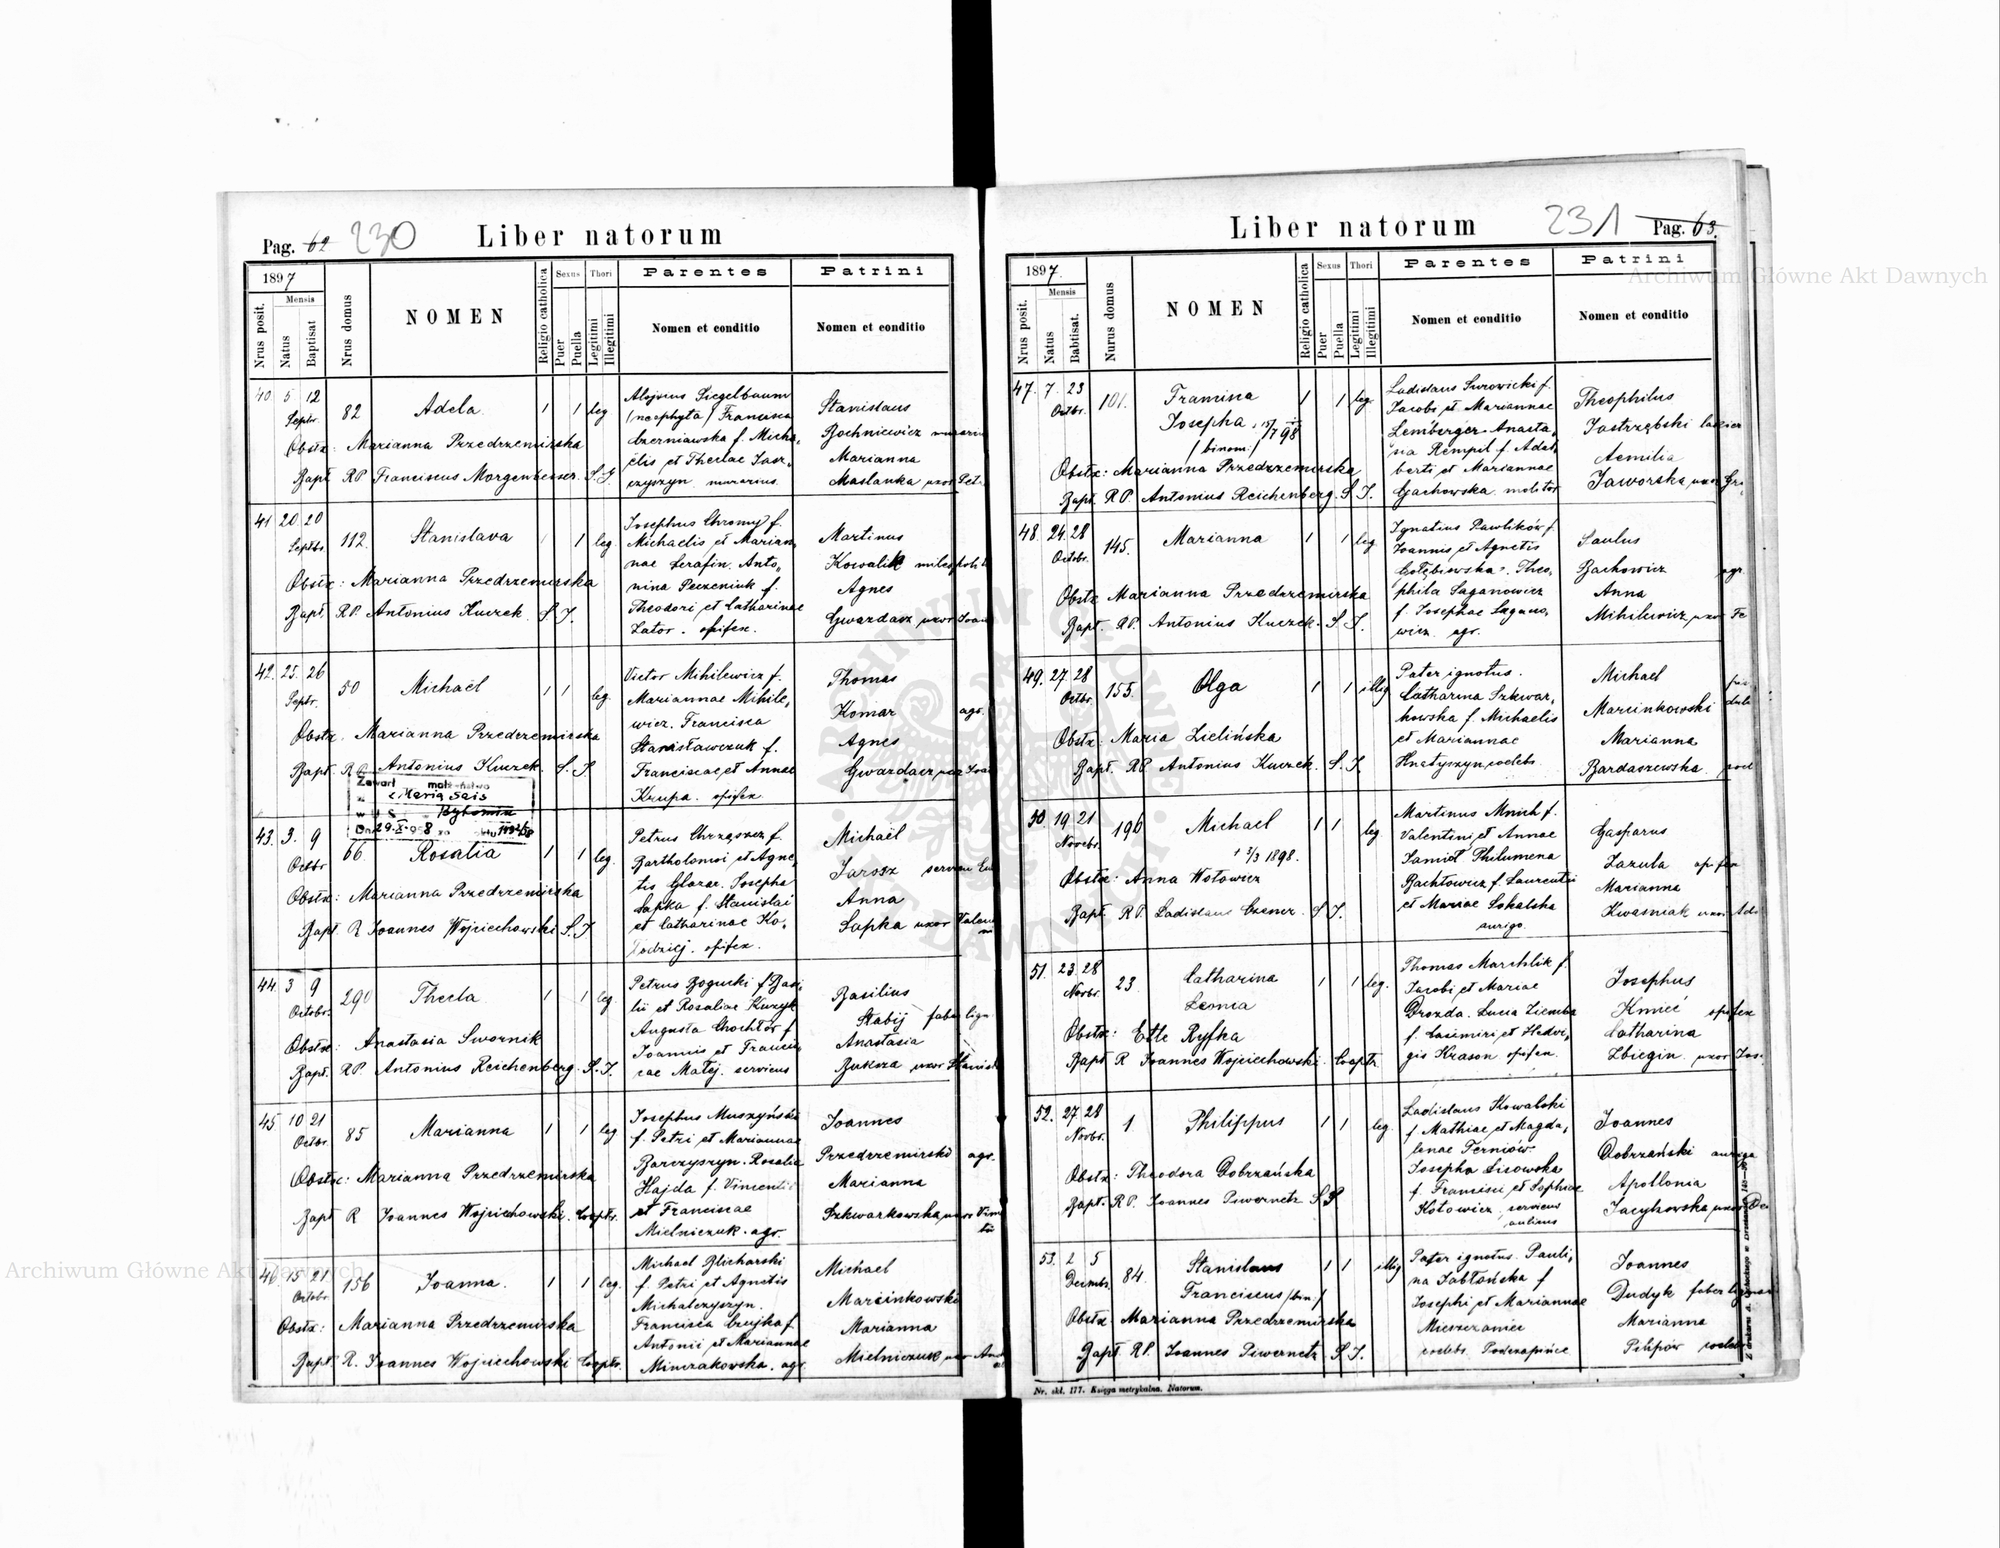 Pag. 62 230 Liber natorum
1897
Nrus posit.
Mensis
Natus
Baptisat
Nrus domus
NOMEN
Religio catholica
Sexus
Puer
Puella
Thori
Legitimi
Illegitimi
Parentes
Nomen et conditio
Patrini
Nomen et conditio
40 5 12 Septr. 82 Adela 1 1 leg
Obstx: Marianna Przedrzemirska
Bapt RP Franciscus Morgenbesser S. J.
Alojsius Siegelbaum
(neophyta) Francisca
Czerniawska f. Micha,
elis et Theclae Jasz,
czyszyn murarius.
Stanislaus
Bochniewicz
Marianna
Maslanka uxor Pet.
41 20 20 Septbr. 112 Stanislava 1 leg
Obstx: Marianna Przedrzemirska
Bapt. RP. Antonius Kuczek S. J.
Josephus Chromy f.
Michaelis et Marian,
nae Serafin. Anto,
nina Peczeniuk f.
Theodori et Catharinae
Zator. opifex.
Martinus
Kowalik
Agnes
Gwardasz uxor
42. 25. 26 Septr. 50 Michaël 1 1 leg.
Obstx. Marianna Przedrzemirska
Bapt. RP Antonius Kuczek. S. J.
Victor Mihilewicz f.
Mariannae Mihile,
wicz. Francisca
Stanisławczuk f.
Franciscae et Annae
Krupa. opifex
Thomas
Komar agr.
Agnes
Gwardasz
Zawarł małżeństwo
z Maria Sais
w U S C Bytomiu
43. 3. 9 Octbr 66. Rosalia 1 1 leg.
Obstx: Marianna Przedrzemirska
Bapt. R Joannes Wojciechowski S. J
Petrus Chrząszcz f.
Bartholomei et Agne,
tis Glazar. Josepha
Sapka f. Stanislai
et Catharinae Ko,
lodziej. opifex.
Michaël
Jarosz
Anna
Sapka uxor
44. 3 9 Octobr. 290 Thecla 1 1 leg.
Obstx: Anastasia Swornik
Bapt. RP. Antonius Reichenberg. S. J.
Petrus Bogucki f. Basi,
lii et Rosaliae Kuzyk
Augusta Chochtór f
Joannis et Francis,
cae Matej. servicus
Basilius
Stabij faber lign.
Anastasia
Buksza uxor
45 10 21 Octbr. 85 Marianna 1 1 leg
Obstx: Marianna Przedrzemirska
Bapt R Joannes Wojciechowski. Cooptr.
Josephus Muszyński
f. Petri et Mariannae
Barczyszyn. Rosalia
Hajda f. Vincentii
et Franciscae
Mielniczuk. agr.
Joannes
Przedrzemirski agr.
Marianna
Szkwarkowska, uxor
46 15 21 Octobr. 156 Joanna. 1 1 leg.
Obstx: Marianna Przedrzemirska
Bapt. R. Joannes Wojciechowski Cooptr.
Michael Blicharski
f. Petri et Agnetis
Michalczyszyn.
Francisca Czujka f.
Antonii et Mariannae
Minczakowska. agr
Michael
Marcinkowski
Marianna
Mielniczuk
Liber natorum 231 Pag. 63.
1897.
Nrus posit.
Mensis
Natus
Babtisat.
Nurus domus
NOMEN
Religio catholica
Sexus
Puer
Puella
Thori
Legitimi
Illegitimi
Parentes
Nomen et conditio
Patrini
Nomen et conditio
47. 7. 23 Octbr. 101. Framina 1 1 leg.
Josepha
/binom/
Obstx: Marianna Przedrzemirska
Bapt. RP. Antonius Reichenberg. S. J.
Ladislaus Surowicki f.
Jacobi et Mariannae
Lemberger Anasta,
sia Rempil f. Adal,
berti et Mariannae
Gachowska molitor
Theophilus
Jastrzębski
Aemilia
Jaworska uxor
48. 24. 28 Octobr. 145. Marianna 1 1 leg
Obstx Marianna Przedrzemirska
Bapt. RP. Antonius Kuczek. S. J.
Ignatius Pawlików f.
Joannis et Agnetis
Gołębiowska. Theo,
phila Saganowicz
f. Josephae Sagano,
wicz. agr.
Paulus
Bachowicz agr.
Anna
Mihilewicz uxor
49. 27. 28 Octbr. 155. Olga 1 1 illig
Obstx: Maria Zielińska
Bapt. RP Antonius Kuczek. S. J.
Pater ignotus.
Catharina Szkwar,
kowska f. Michaelis
et Mariannae
Hnatyszyn, coelebs.
Michael
Marcinkowski
Marianna
Bardaszewska
50. 19. 21 Novebr. 196 Michael 1 1 leg
† 3/3 1898.
Obstx: Anna Wołowicz
Bapt. RP. Ladislaus Czener. S. J.
Martinus Mnich f.
Valentini et Annae
Samid Philumena
Bachtowicz f. Laurentii
et Mariae Sokalska
auriga.
Gasparus
Zazula opifex
Marianna
Kwasniak uxor
51. 23. 28 Novbr. 23 Catharina 1 1 leg.
Leonia
Obstx: Etle Ryfka
Bapt R Joannes Wojciechowski. Cooptr.
Thomas Marchlik f.
Jacobi et Mariae
Drozda. Lucia Ziemba
f. Casimiri et Hedvi,
gis Krason opifex.
Josephus
Kmieć opifex
Catharina
Zbiegin. uxor Jos.
52. 27. 28 Novbr. 1 Philippus 1 1 leg.
Obstx: Theodora Dobrzańska
Bapt. RP. Joannes Piwernetz S.J.
Ladislaus Kowalski
f. Mathiae et Magda,
lenae Ferniów.
Josepha Lisowska
f. Francisci et Sophiae
Kotowicz, servicus
aulicus
Joannes
Dobrzański auriga
Apollonia
Jacykowska, uxor
53. 2 5 Decembr. 84. Stanislaus 1 1 illig
Franciscus /bin./
Obstx. Marianna Przedrzemirska
Bapt RP. Joannes Piwernetz S. J.
Pater ignotus. Pauli,
na Jabłońska f
Josephi et Mariannae
Mieszczaniec
coelebs.
Joannes
Dudyk faber
Marianna
Pilipów coelebs
Nr. skł. 177. Księga metrykalna. Natorum.
Archiwum Główne Akt Dawnych
Archiwum Główne Akt Dawnych